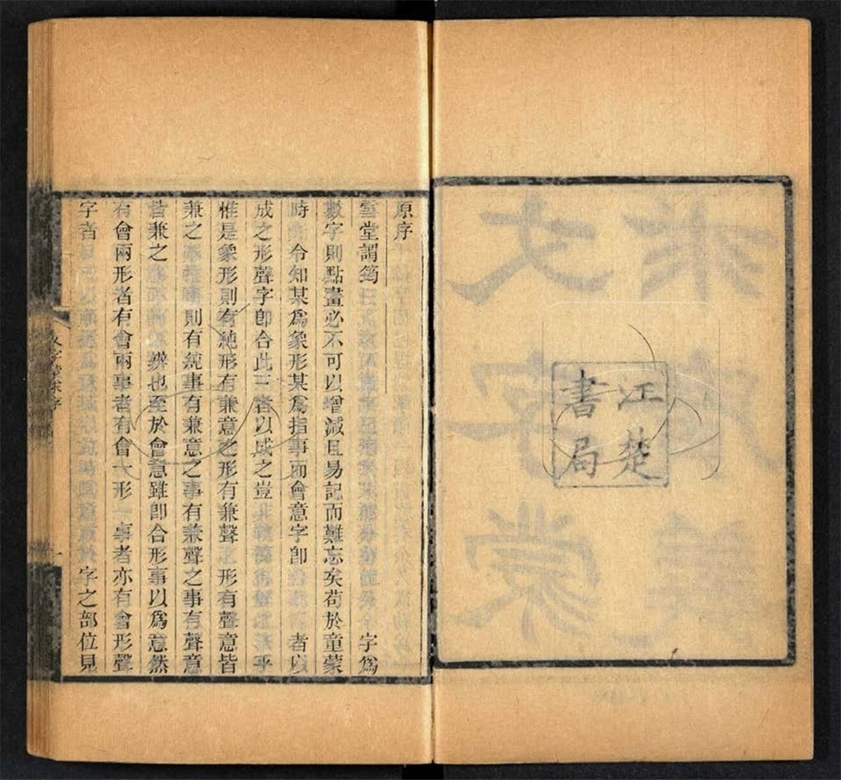 江楚
書局
原序
雪堂謂筠 字爲
數字則點畫必不可以增減且易記而難忘矣苟於童蒙
時 令知某爲象形某爲指事而會意字卽 者以
成之形聲字卽合此三者以成之豈 乎
惟是象形則有純形有兼意之形有兼聲 形有聲意皆
兼之 則有純事有兼意之事有兼聲之事有聲意
皆兼之 辨也至於會意雖卽合形事以爲意然
有會兩形者有會兩事者有會一形一事者亦有會形聲
字者 字之部位見
文字蒙求序